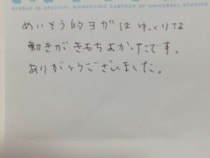 OFFICIAL MARKETING PARTNER OF UNIVERSAL STUDIOS
めいそう的ヨガは ゆっくりな
動きが きもちよかったです。
ありがとうございました。